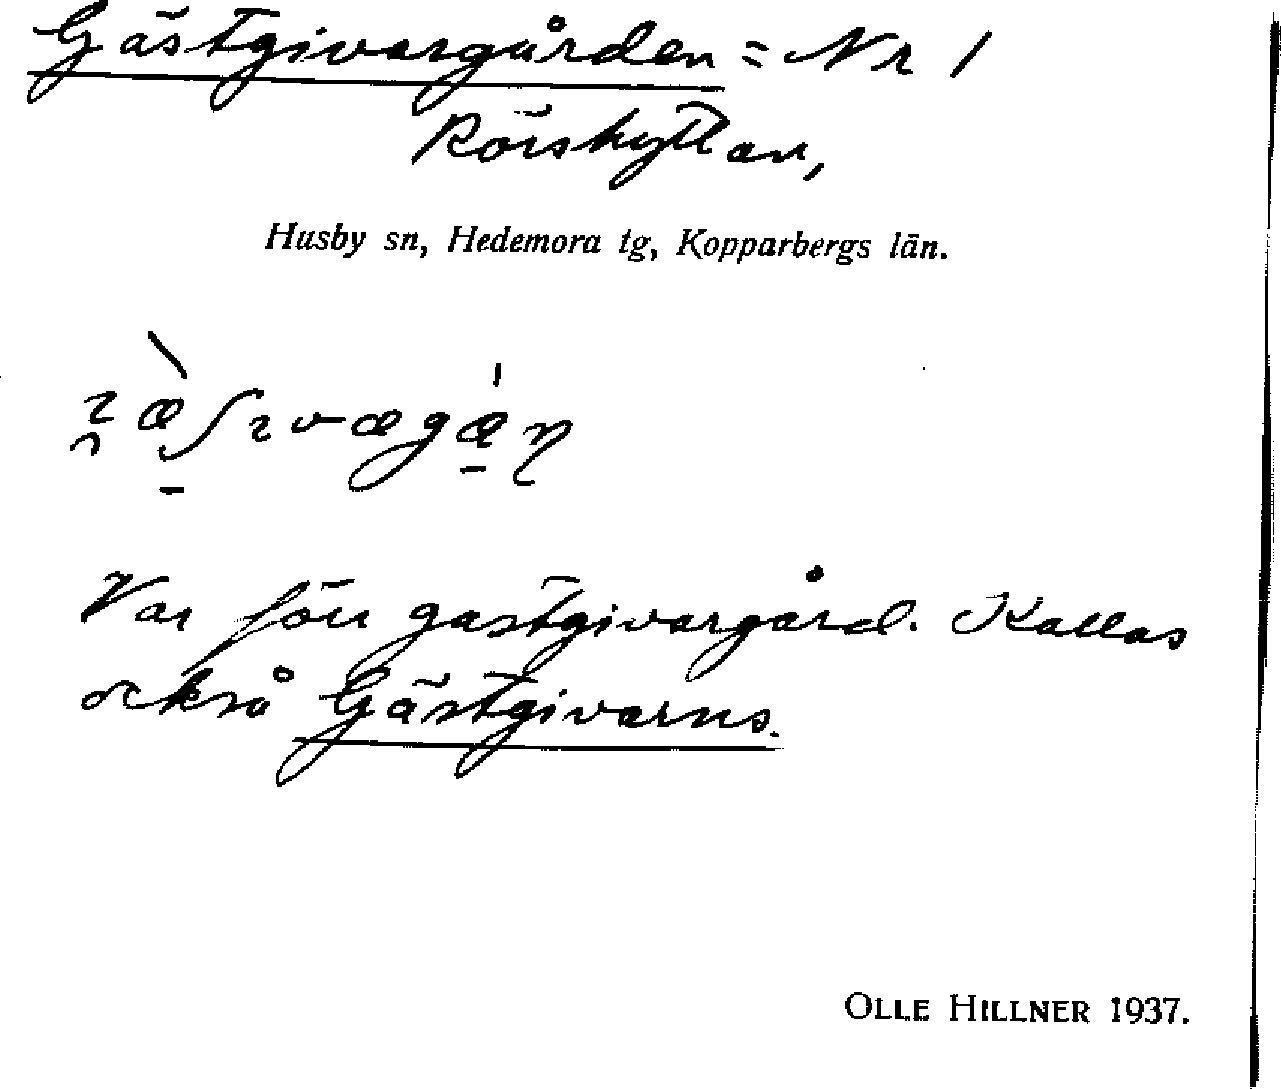 Gästgivargården = Nr 1
Rörshyttan,
Husby sn, Hedemora tg, Kopparbergs län.
Var förr gästgivargård. Kallas
också Gästgivarns.
OLLE HILLNER 1937.